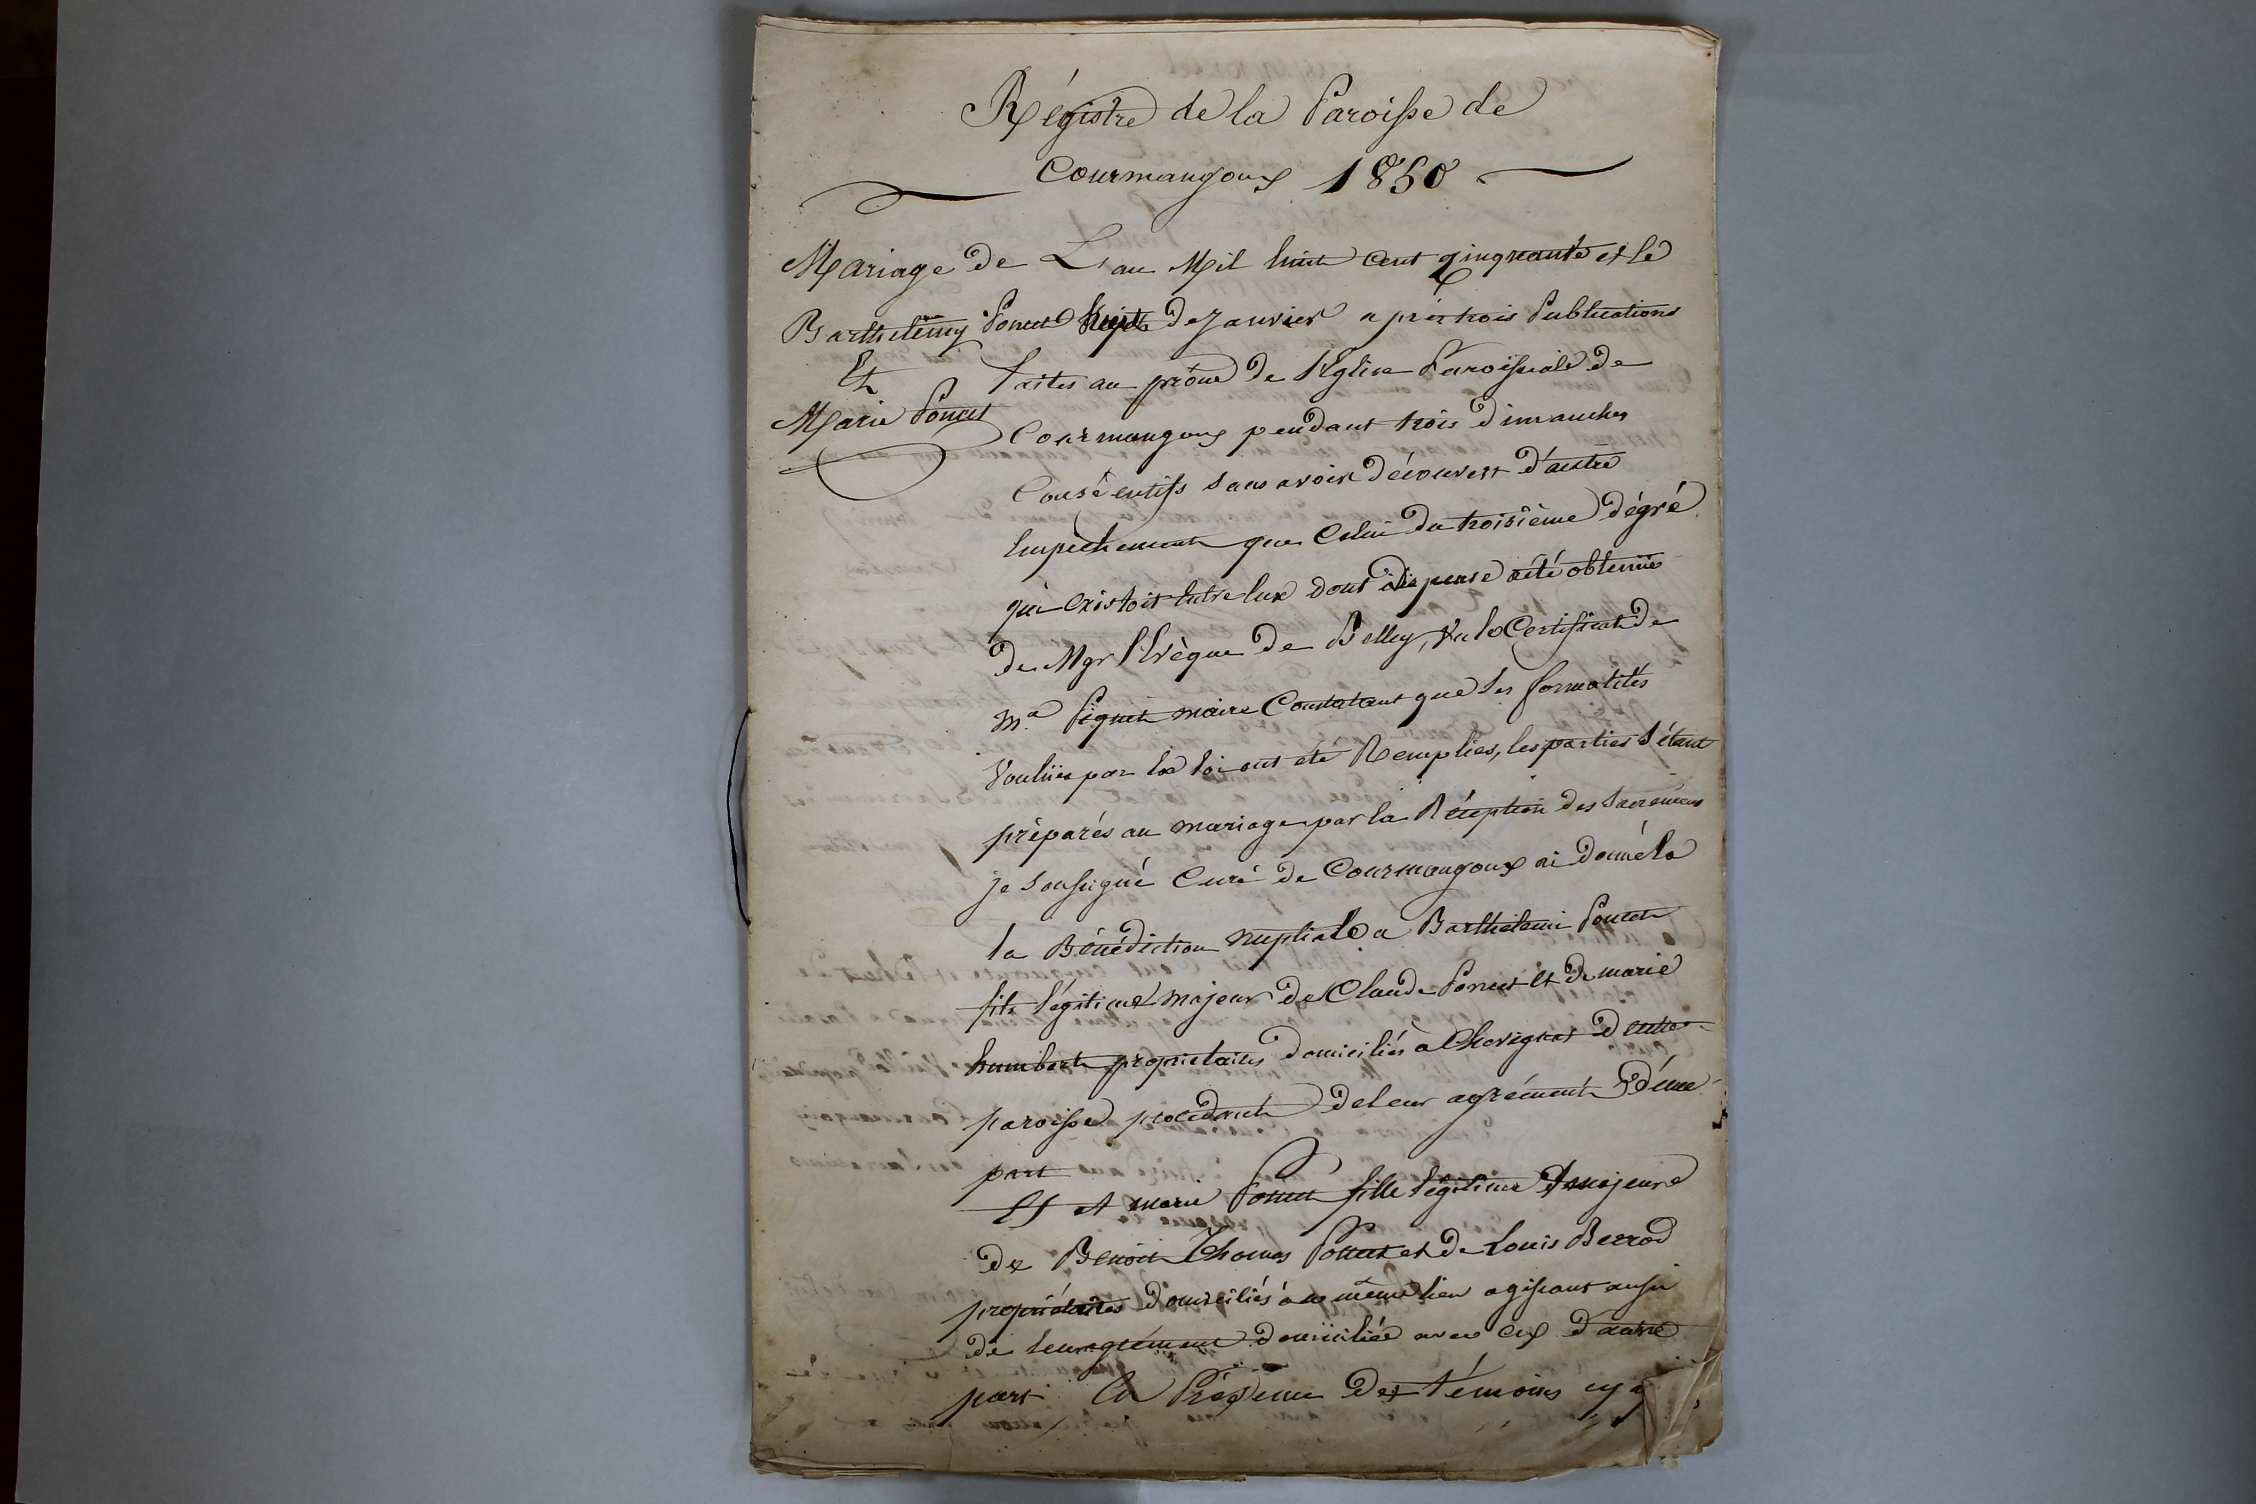 Régistre de la Paroisse de
Courmangoux 1850
Mariage de
Barthelemy Poncet
Et
Marie Poncet
L'an Mil huit cent cinquante et le
huit de Janvier après trois Publications
faites au prône de l'Eglise Paroissiale de
Courmangoux pendant trois dimanches
Conséentifs sans avoir découvert d'autre
Empechement que Celui du troisième dégré
qui Existoit Entre Eux dont dispense a été obtenüe
de Mgr l'Evèque de Belley, Vu le Certificat de
Mr Piquet maire Constatant que les formalités
Voulües par la loi ont été Remplies, les parties s'étant
préparés au mariage par la Réception des Sacremens
je soussigné Curé de Courmangoux ai donné la
la Bénédiction nuptiale a Barthelemi Poncet
fils légitime majeur de Claude Poncet Et de marie
humbert propriétaires domiciliés à Chevignat de cette
paroisse procédant de leur agrément d'une
part
Et et marie Poncet fille légitime majeure
de Benoit Thomas Poncet et de Louis Berrod
propriétaires domiciliés au même lieu agissant aussi
de leur agrément domiciliée avec Eux d'autre
part En Présence des témoins cy